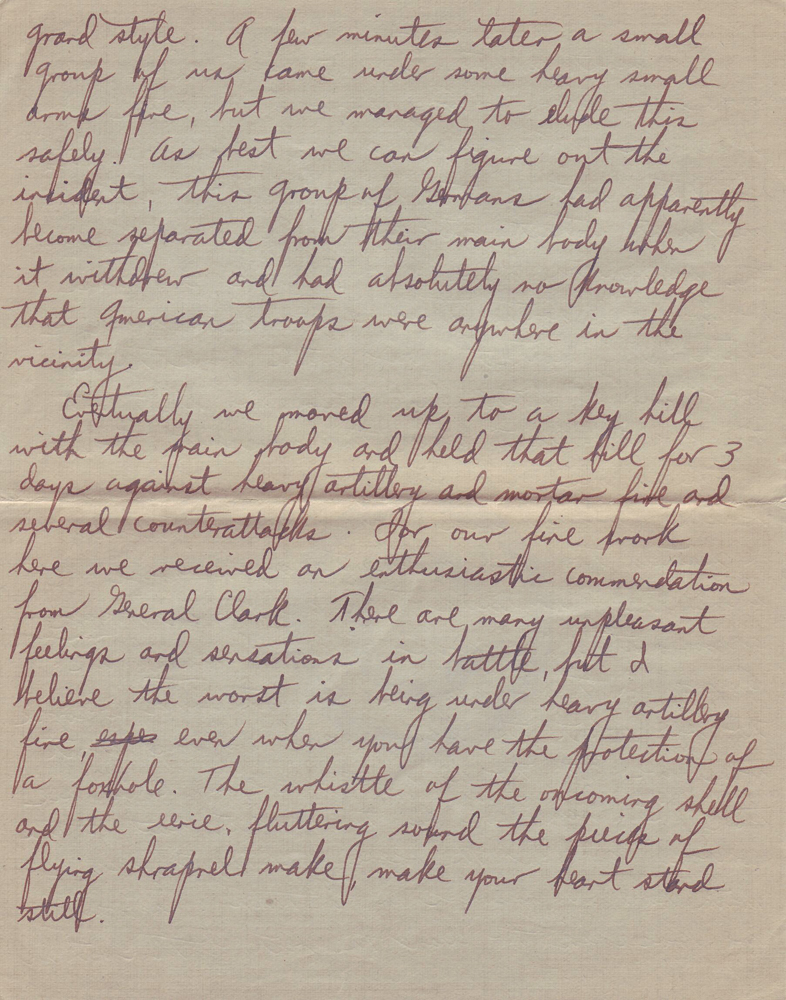 grand style. A few minutes later a small
group of us came under some heavy small
arms fire, but we managed to elude this
safely. As best we can figure out the
incident, this group of Germans had apparently
become separated from their main body when
it withdrew and had absolutely no knowledge
that American troops were anywhere in the
vicinity.
Eventually we moved up to a key hill
with the main body and held that hill for 3
days against heavy artillery and mortar fire and
several counterattacks. For our fine work
here we received an enthusiastic commendation
from General Clark. There are many unpleasant
feelings and sensations in battle, but I
believe the worst is being under heavy artillery
fire, espe even when you have the protection of
a foxhole. The whistle of the oncoming shell
and the eerie, fluttering sound the pieces of
flying shrapnel make, make your heart stand
still.